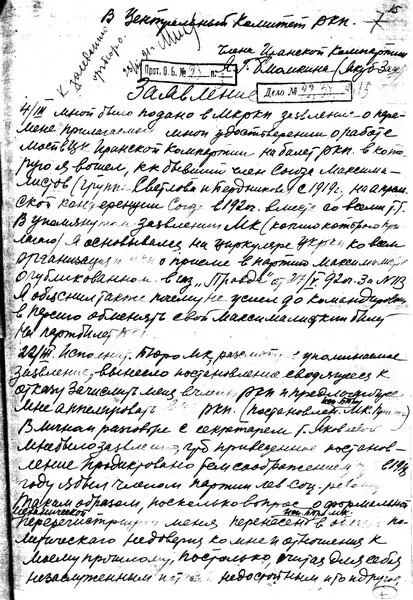 В Центральный Комитет РКП.
К заседанию
Оргбюро.
Члена Иранской Компартии
Я. Г. Блюмкина
Прот. О. Б. №
Дело №
Заявление
4/III мной было подано в МК РКП заявление о пере-
мене прилагаемого мной удостоверения о работе
моей в ЦК Иранской Компартии на билет РКП. в кото-
рую я вошел, как бывший член Союза Максима-
листов (группы Светлова и Бердникова) с 1919 г., на апрель-
ской конференции Союза в 1920 г. вместе со всеми т.т.
В упомянутом заявлении МК (копию которого при-
лагаю) я основывался на циркуляре ЦК РКП ко всем
организациям о приеме в партию Максималистов
опубликованном в газ. "Правда" от V 920 г. За №
Я объяснил также почему не успел до командировки
в Персию обменять свой Максималистский билет
на партбилет РКП
22/III. Исполнит. Бюро МК, рассмотрев упоминаемое
заявление, вынесло постановление сводящееся к
отказу зачислить меня в члены РКП и предложившее
мне апеллировать РКП. (постановлен. МК
В личном разговоре с секретарем т. Яковлевой
мне было заявлено, что приведенное постанов-
ление продиктовано тем соображением, в 1918
году я был членом партии лев. соц.-револ.
Таким образом, поскольку вопрос о формальной
механической
перерегистрации меня перенесен в область по-
литического недоверия ко мне и отношения к
моему прошлому, постольку, считая для себя
незаслуженным недостойным и то и другое,